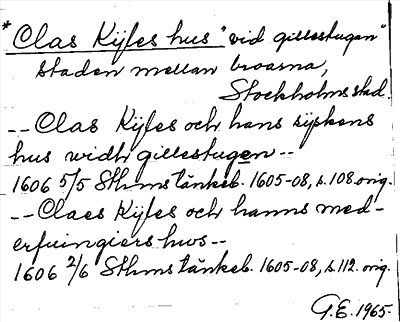 * Clas Kijfes hus "vid gillestugan"
staden mellan broarna,
Stockholms stad.
-- Clas Kijfes och hans sijskens
hus widh gillestugen --
1606 5/5 Sthms tänkeb. 1605-08, s.108 orig.
-- Claes Kijfes och hanns med-
erfuingiers hws --
1606 2/6 Sthms tänkeb. 1605-08, s.112. orig.
G.E. 1965.